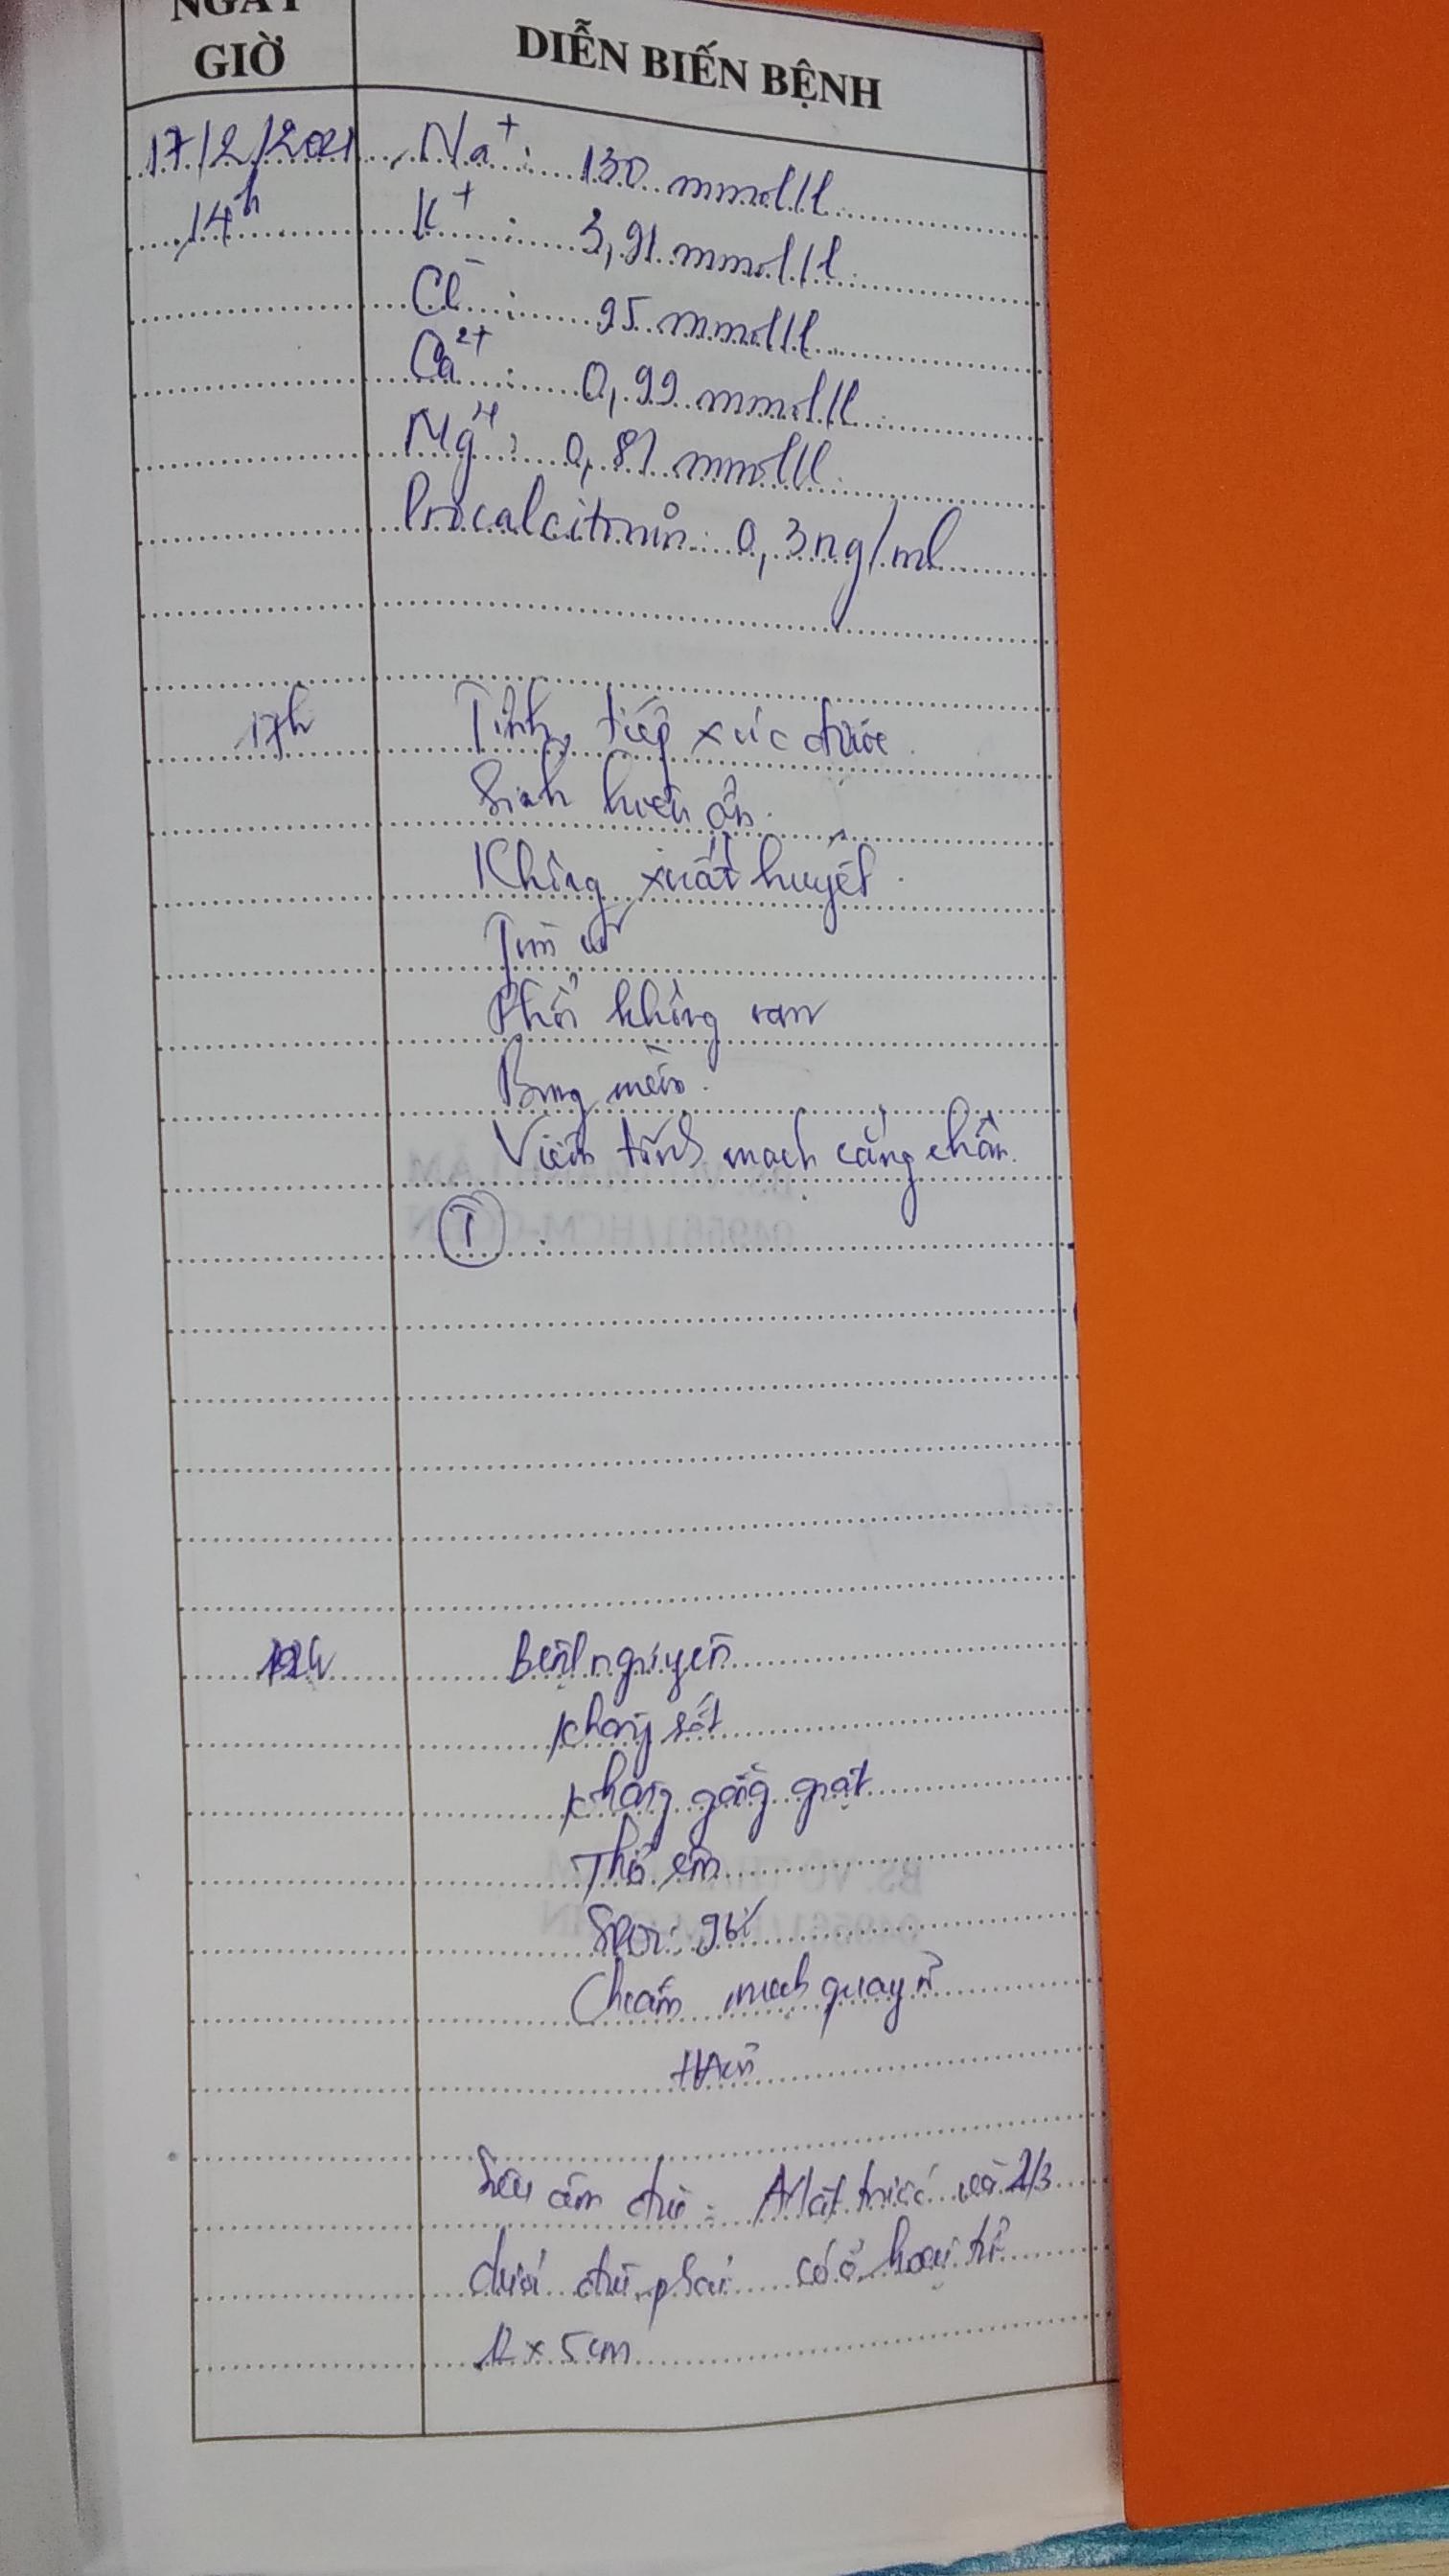 NGÀY
GIỜ
DIỄN BIẾN BỆNH
17/2/2021 Na+ : 130 mmol/l
14h K+ : 3,91 mmol/l
Cl- : 95 mmol/l
Ca2+ : 0,99 mmol/l
Mg2+ : 0,81 mmol/l
Procalcitonin : 0,3 ng/ml
17h Tỉnh, tiếp xúc được
Sinh hiệu ổn.
Không xuất huyết.
Tim
Phổi không ran
Bụng mềm.
Viêm tĩnh mạch cẳng chân.
T :
Bệnh
Không sốt
Không gồng giật
Thở êm
mạch quay rõ
Siêu âm đùi : Mặt trước và 2/3
dưới đùi phải có ổ hoại tử
12 x 5 cm